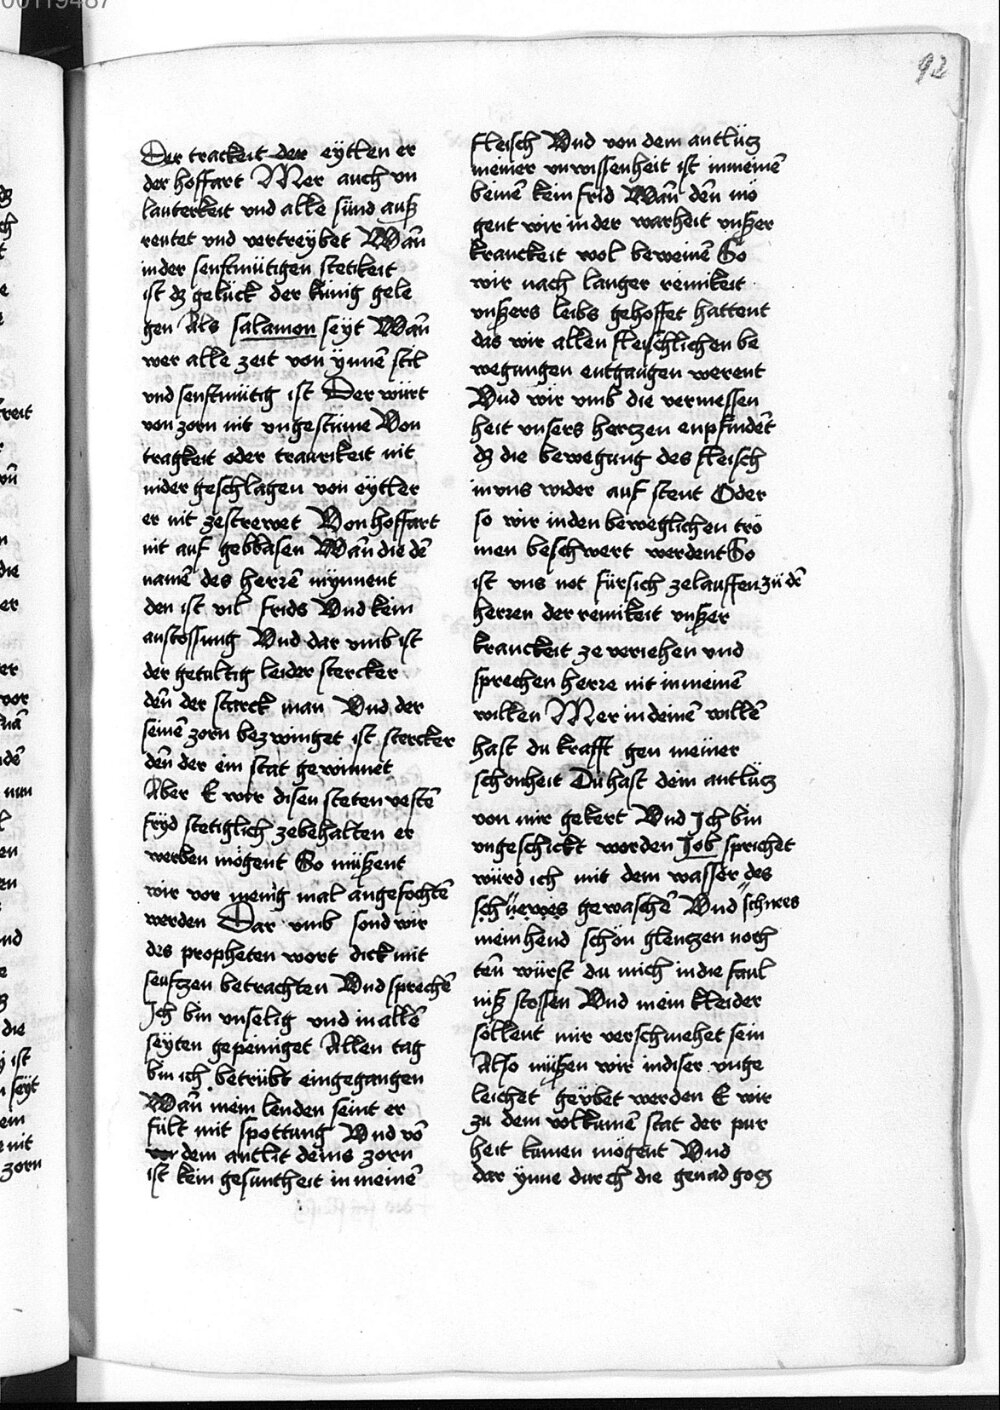 92
Der trackeit der eytlen er
der hoffart Mer auch vn
lauterkeit vnd alle sünd auß
reutet vnd vertreybet Wañ
in der senftmütigen stetikeit
ist dz gelück der künig gele
gen Als salamon seyt Wañ
wer alle zeit von ynnē stil
vnd senftmütig ist Der würt
von zorn nit vngestüme Von
tragkeit oder traurikeit nit
nider geschlagen von eytler
er nit zestrewet Von hoffart
nit auf geblasen Wañ die dē
namē des herrē mynnent
den ist vil frids Vnd kein
anstossung Vnd dar vmb ist
der getultig leider stercker
dēn der starck man Vnd der
seinē zorn bezwinget ist stercker
dēn der ein stat gewinnet
Aber E wir disen steten vestē
fryd stetiglich zebehalten er
werben mögent So müßent
wir vor menig mal angefochtē
werden Dar vmb sond wir
des propheten wort dick mit
seufzen betrachten Vnd sprechē
Ich bin vnselig vnd in allē
seyten gepeiniget Allen tag
bin ich betrübt eingegangen
Wañ mein lenden seint er
fült mit spottung Vnd vō
vor dem antlit deins zorn
ist kein gesuntheit in meinē
fleisch Vnd von dem antlücz
meiner vnwissenheit ist in meinē
beinē kein frid Wañ dēn mö
gent wir in der warheit vnßer
kranckeit wol beweinē So
wir nach langer reinikeit
vnßers leibs gehoffet hattent
das wir allen fleischlichen be
wegungen entgangen werent
Vnd wir vmb die vermessen
heit vnsers herczen enpfindēt
dz die bewegung des fleisch
in vns wider auf stent Oder
so wir in den beweglichen trö
men beschwert werdent So
ist vns not fürsich zelauffen zü dē
herren der reinikeit vnßer
kranckeit ze veriehen vnd
sprechen herre nit in meinē
willen Mer in deinē willē
hast du krafft gen meiner
schonheit Du hast dein antlücz
von mir gekert Vnd Ich bin
vngeschickt worden Job sprichet
würd ich mit dem wasser des
gewaschē Vnd schnees
mein hend schön glenczen noch
tēn würst du mich in die faul
niß stossen Vnd mein kleider
söllent mir verschmehet sein
Also müßen wir in diser vnge
leichet geübet werden E wir
zu dem volkumē stat der pur
heit kumen mögent Vnd
dar ynne durch die genad gocz